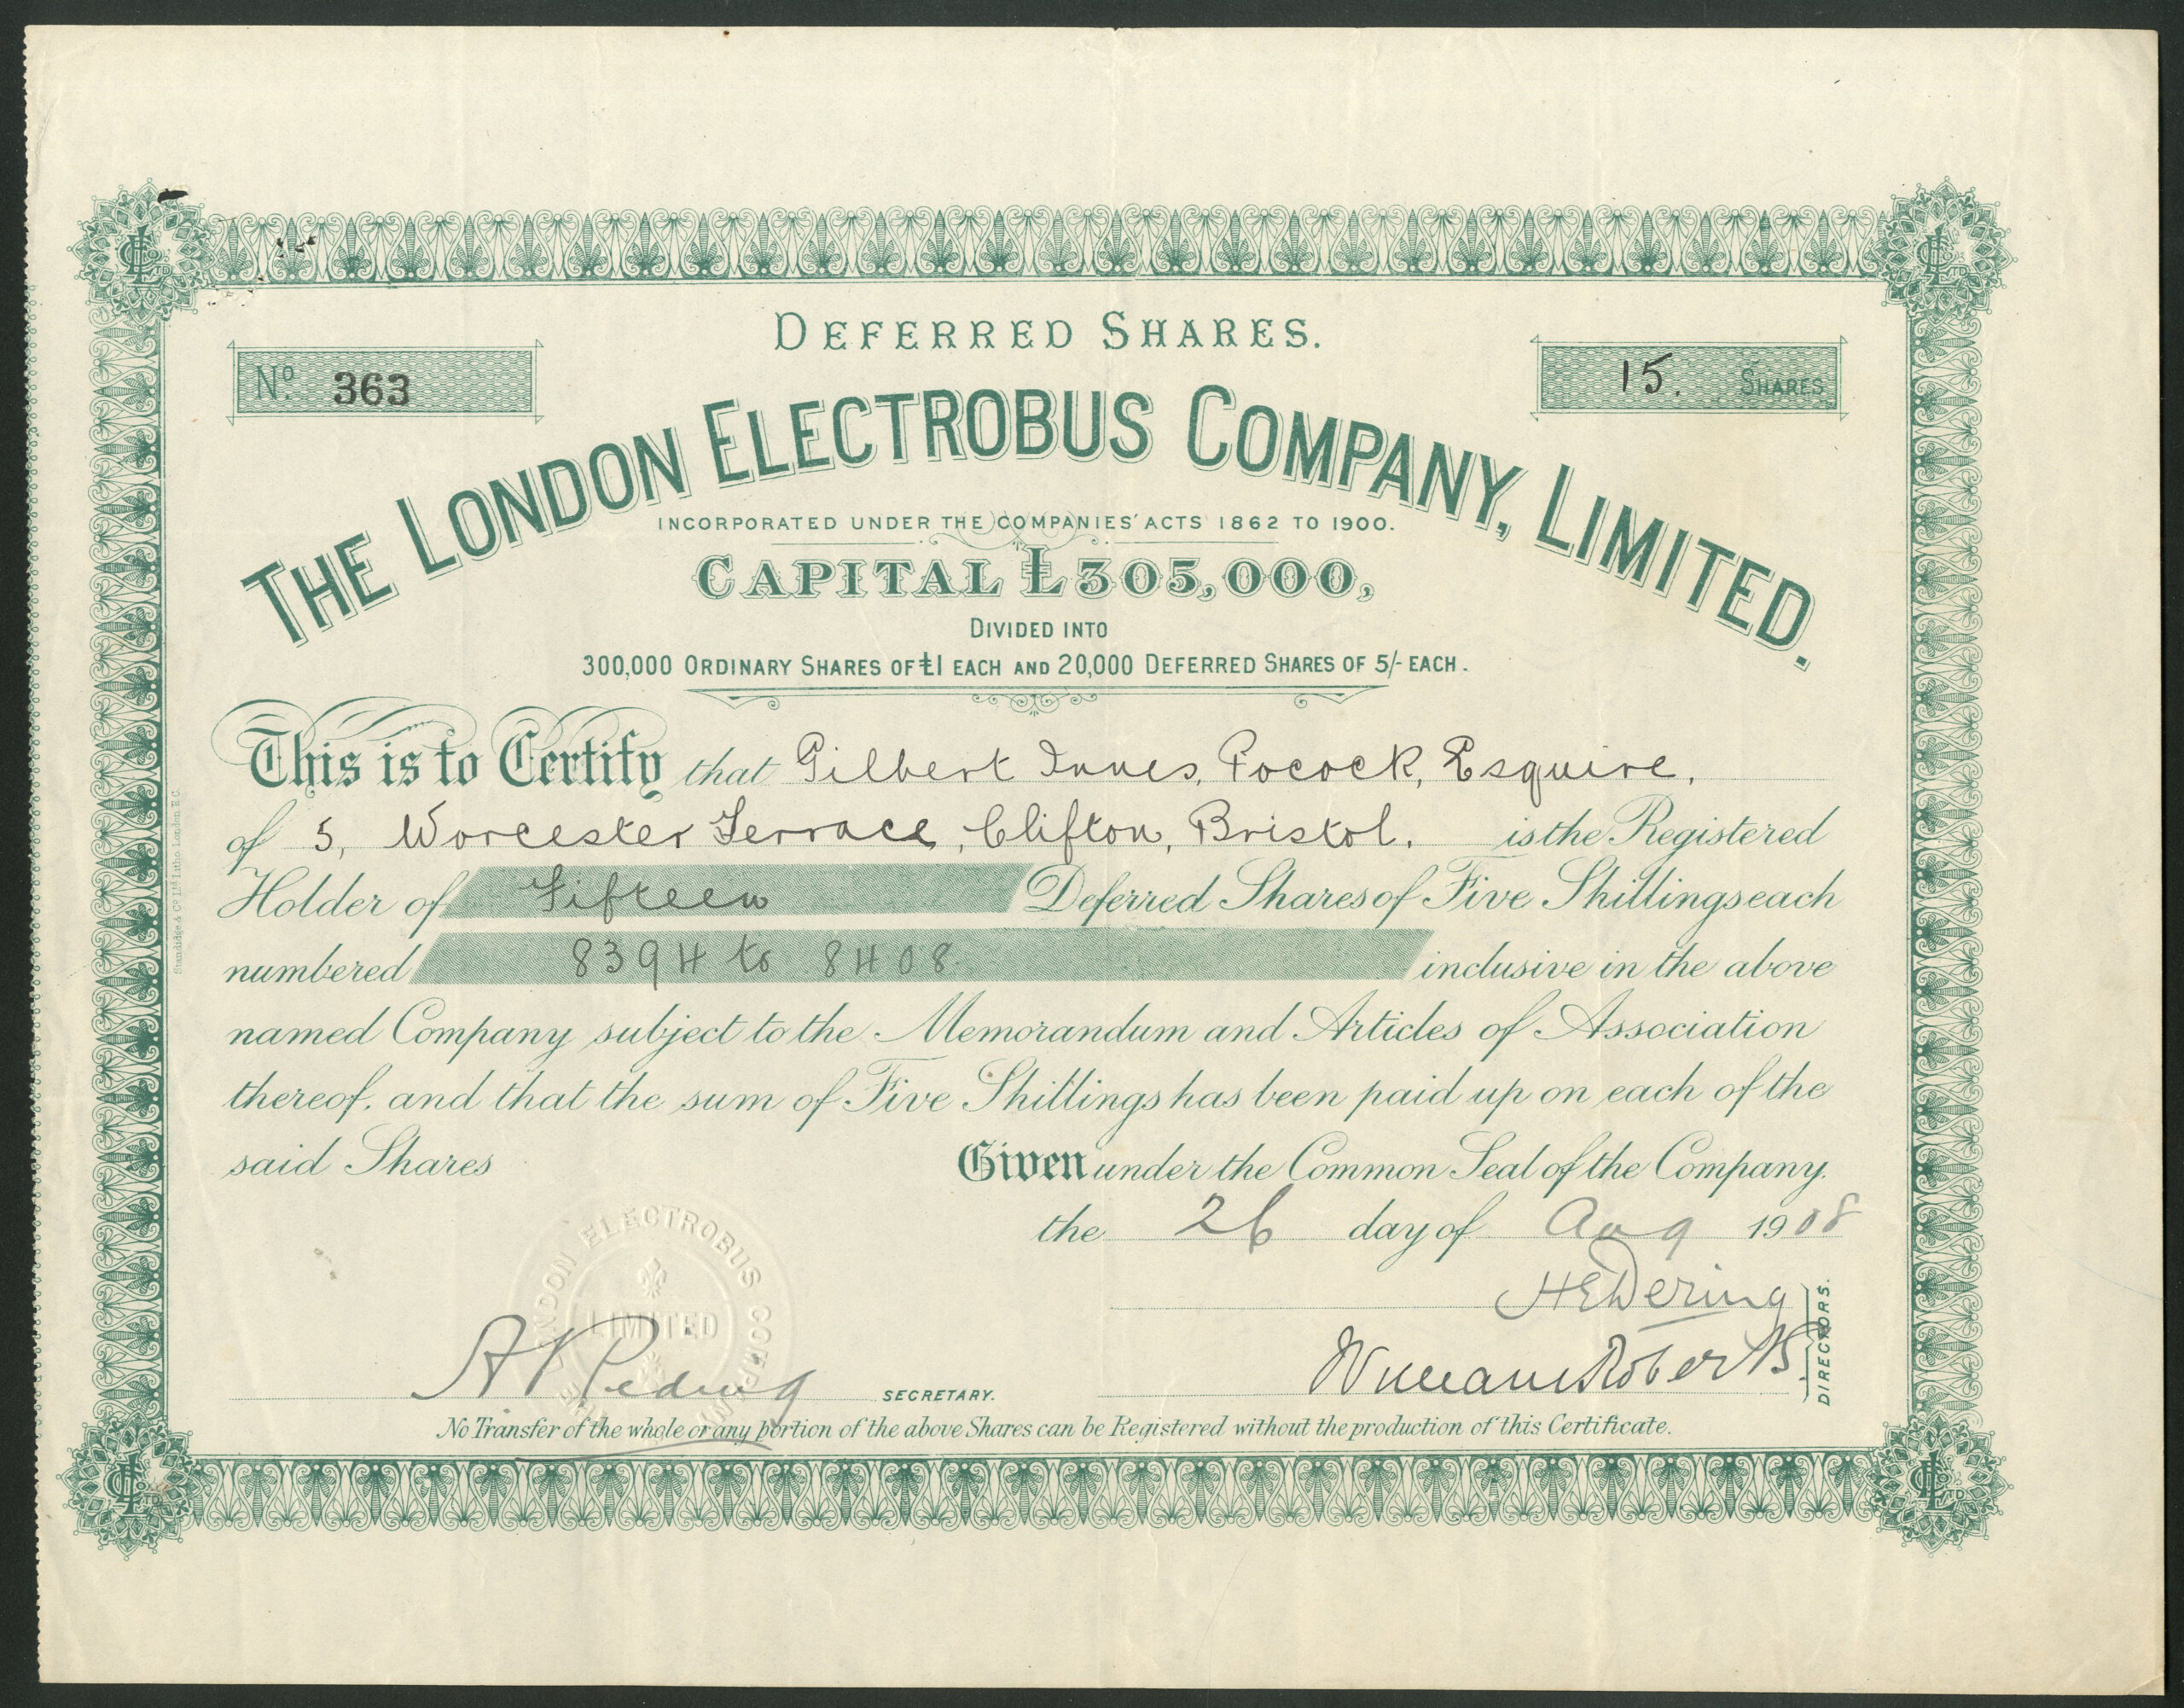 DEFERRED SHARES.
No. 363
15. SHARES
THE LONDON ELECTROBUS COMPANY, LIMITED.
INCORPORATED UNDER THE COMPANIES' ACTS 1862 TO 1900.
CAPITAL £305,000,
DIVIDED INTO
300,000 ORDINARY SHARES OF £1 EACH AND 20,000 DEFERRED SHARES OF 5/- EACH.
This is to Certify that Gilbert Innes, Pocock, Esquire,
of 5, Worcester Terrace, Clifton, Bristol. is the Registered
Holder of Fifteen Deferred Shares of Five Shillings each
numbered 8394 to 8408 inclusive in the above
named Company subject to the Memorandum and Articles of Association
thereof, and that the sum of Five Shillings has been paid up on each of the
said Shares
Given under the Common Seal of the Company.
the 26 day of Aug 1908
THE LONDON ELECTROBUS COMPANY
LIMITED
H E Dering
William Roberts
DIRECTORS.
SECRETARY.
No Transfer of the whole or any portion of the above Shares can be Registered without the production of this Certificate.
Standidge & Co Ltd Litho London E.C.